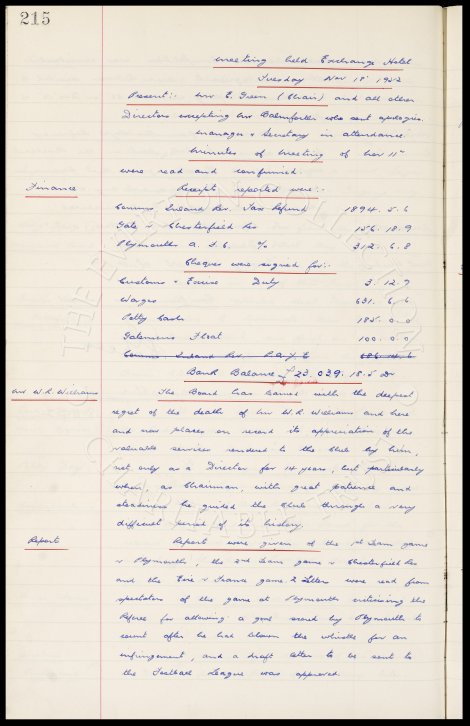 215
Meeting held Exchange Hotel
Tuesday Nov 18th 1952
Present:- Mr E. Green (Chair) and all other
Directors excepting Mr Balmforth who sent apologies.
Manager & Secretary in attendance.
Minutes of meeting of Nov 11th
were read and confirmed.
Finance
Receipts reported were:-
Comms Inland Rev. Tax Refund 1894. 5. 6
Gate v Chesterfield Res 156. 18. 9
Plymouth A. F. C. % 312. 6. 8
Cheques were signed for:-
Customs & Excise Duty 3. 12. 7
Wages 631. 6. 6
Petty Cash 185. 0. 0
Gatemens Float 100. 0. 0
Comms Inland Rev. P.A.Y.E
Bank Balance £23,039. 18. 5 Dr
Mr W. R. Williams
The Board has learned with the deepest
regret of the death of Mr W R Williams and here
and now places on record its appreciation of the
valuable services rendered to the Club by him,
not only as a Director for 14 years, but particularly
when, as Chairman, with great patience and
steadiness he guided the Club through a very
difficult period of its history.
Reports
Reports were given of the 1st Team game
v Plymouth, the 2nd Team game v Chesterfield Res
and the game 2 Letters were read from
spectators of the game at Plymouth criticising the
Referee for allowing a goal scored by Plymouth to
count after he had blown the whistle for an
infringement, and a draft letter to be sent to
the Football League was approved.